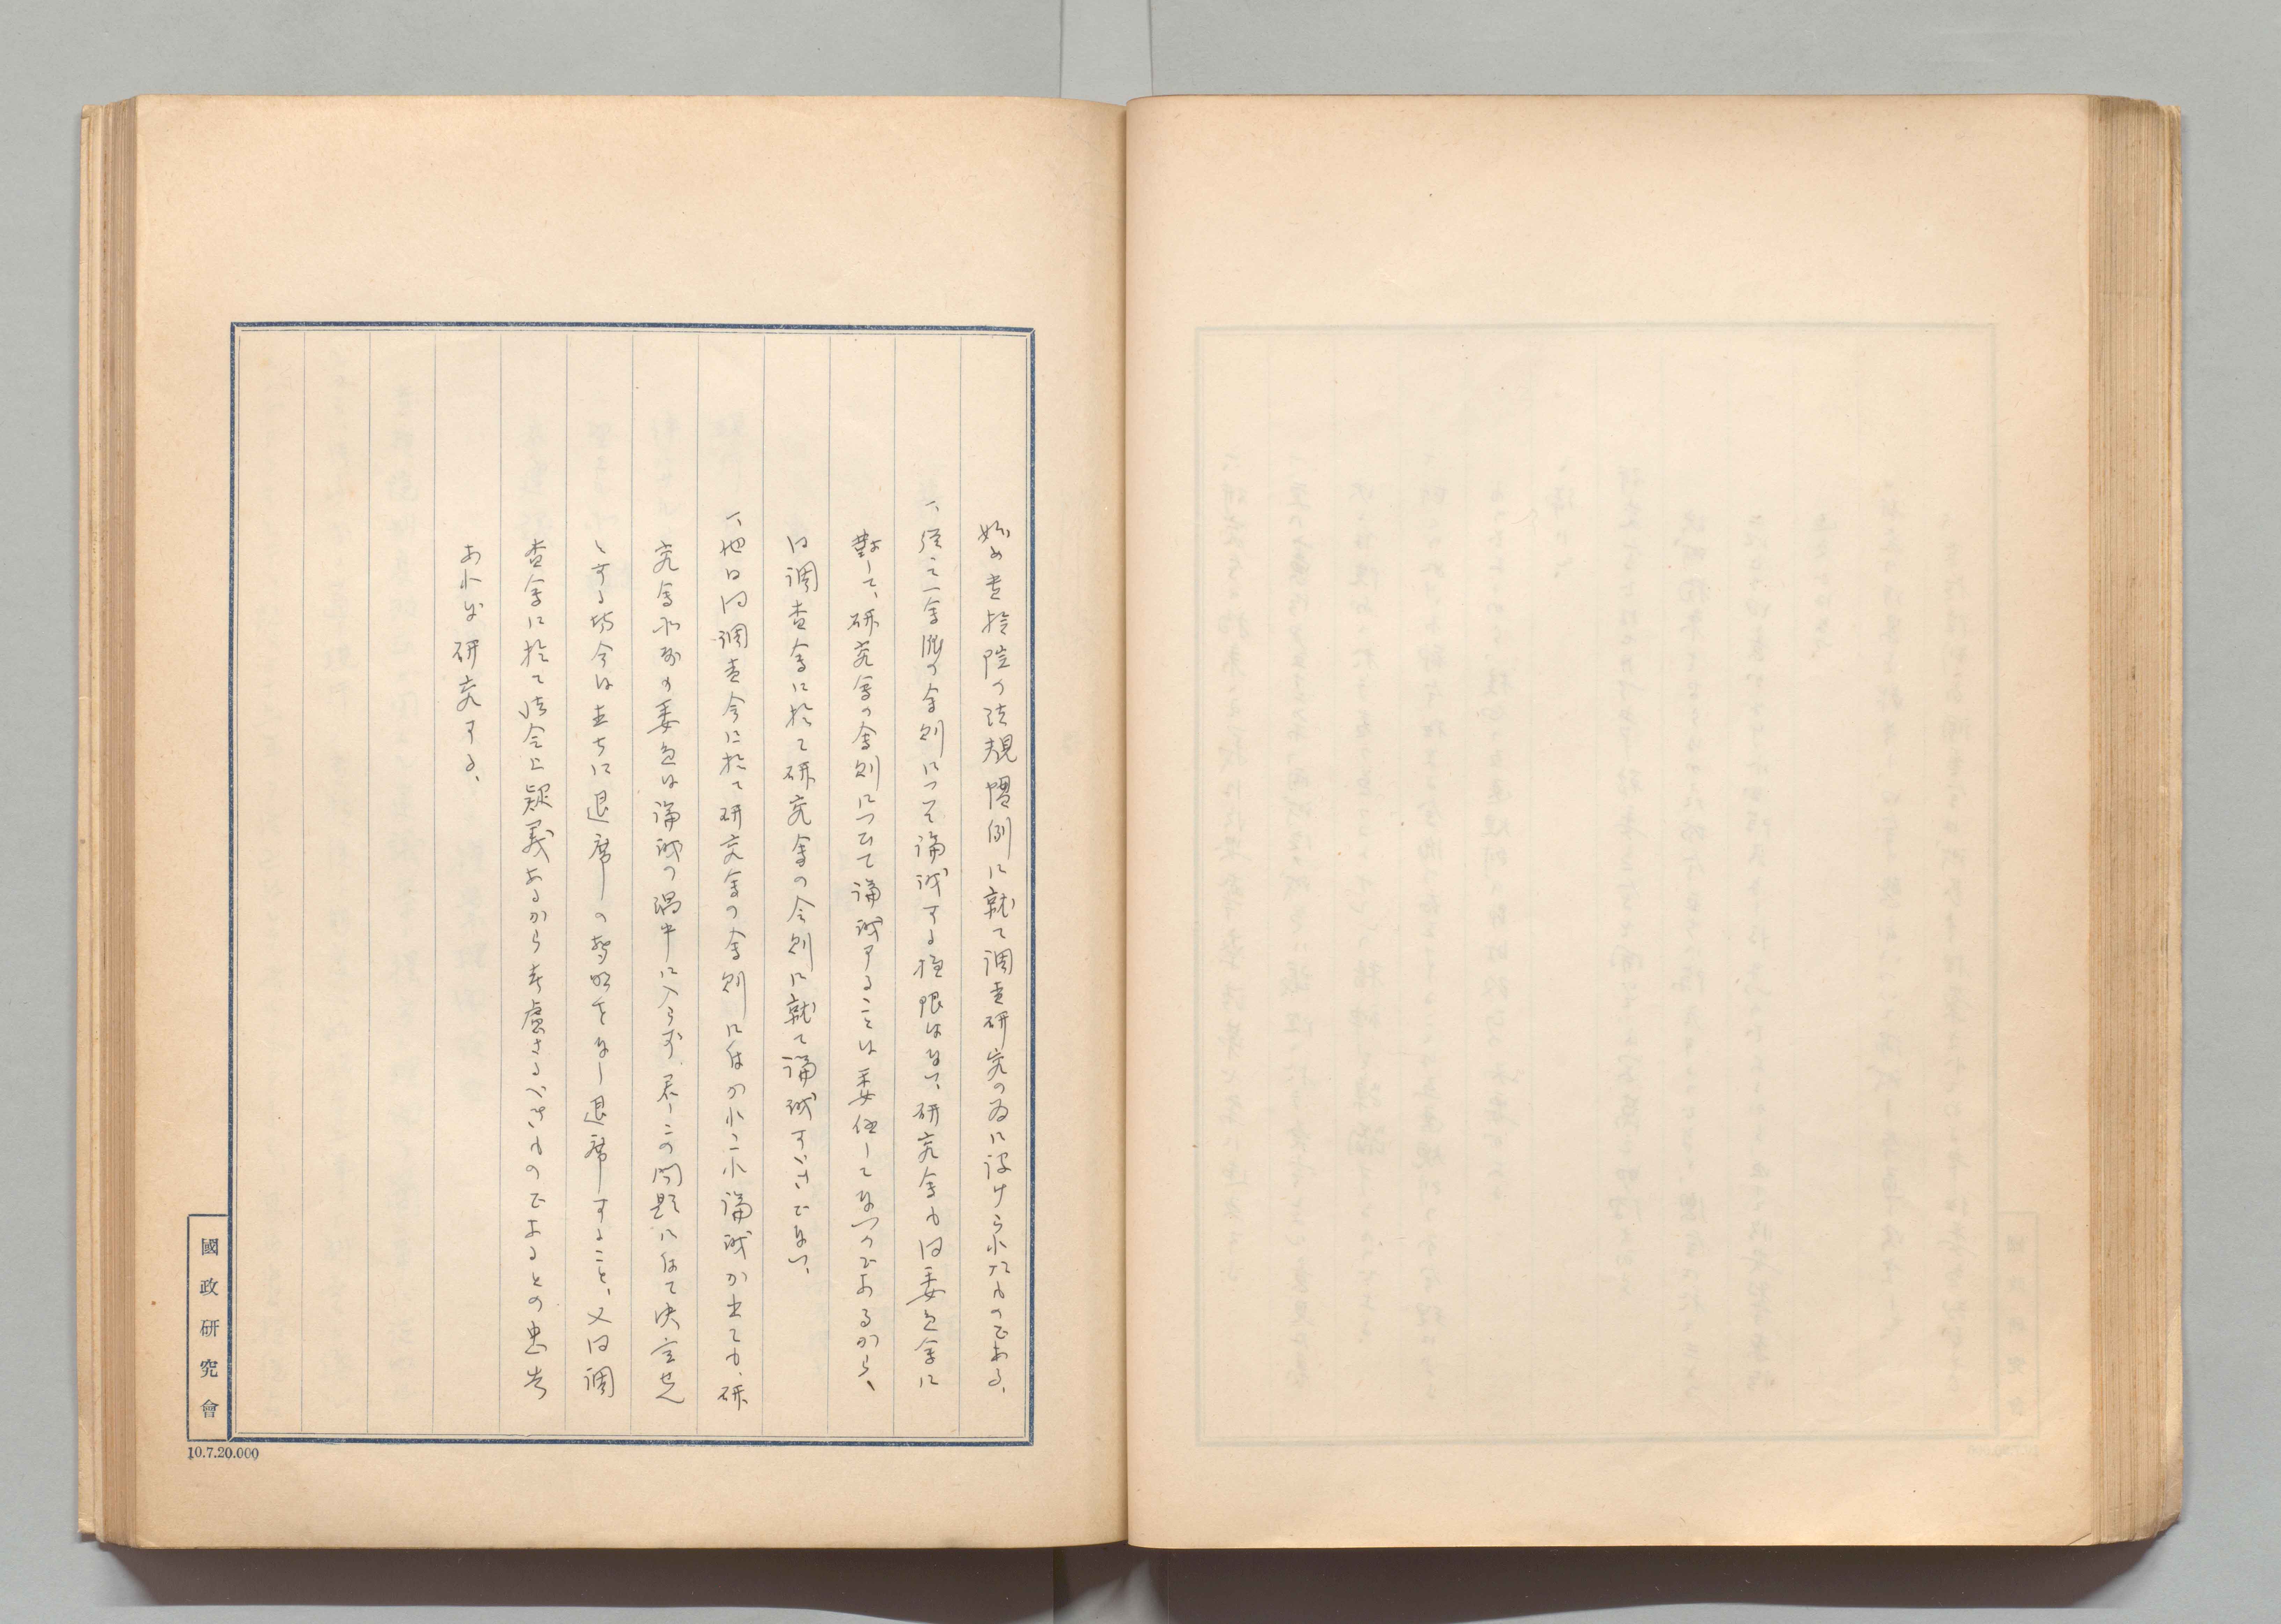 始め貴族院の法規慣例に就て調査研究の為に設けられたものである、
一、従て一会派の会則につき論議する権限はない、研究会も同委員会に
対して、研究会の会則につひて論議することは委任してないのであるから、
同調査会に於て研究会の会則に就て論議すべきでない、
一、他日同調査会に於て研究会の会則に付かれこれ論議が出ても、研
究会所属の委員は論議の渦中に入らず、若しこの問題に付て決定せん
とする場合は直ちに退席の声明をなし退席すること、又は調
査会に於て法令上疑義あるから考慮さるべきものであるとの忠告
あれば研究する、
國政研究會
10.7.20.000